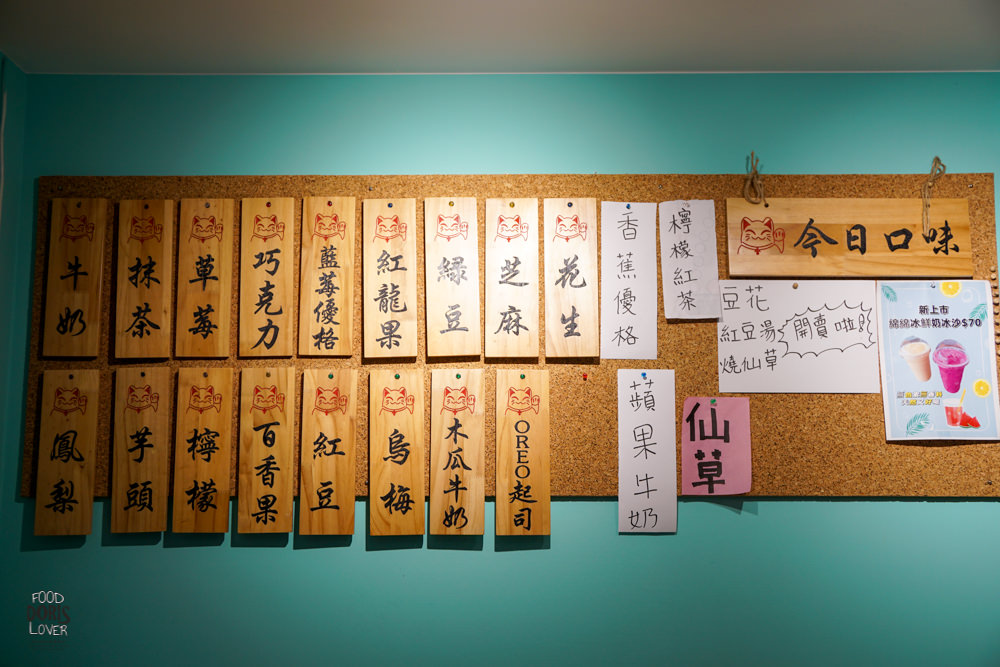 牛奶
抹茶
草莓
巧克力
藍莓優格
紅龍果
綠豆
芝麻
花生
香蕉優格
檸檬紅茶
今日口味
鳳梨
芋頭
檸檬
百香果
紅豆
烏梅
木瓜牛奶
OREO起司
蘋果牛奶
仙草
豆花
紅豆湯
燒仙草
開賣啦!
新上市
綿綿冰鮮奶冰沙$70
FOOD
DORIS
LOVER